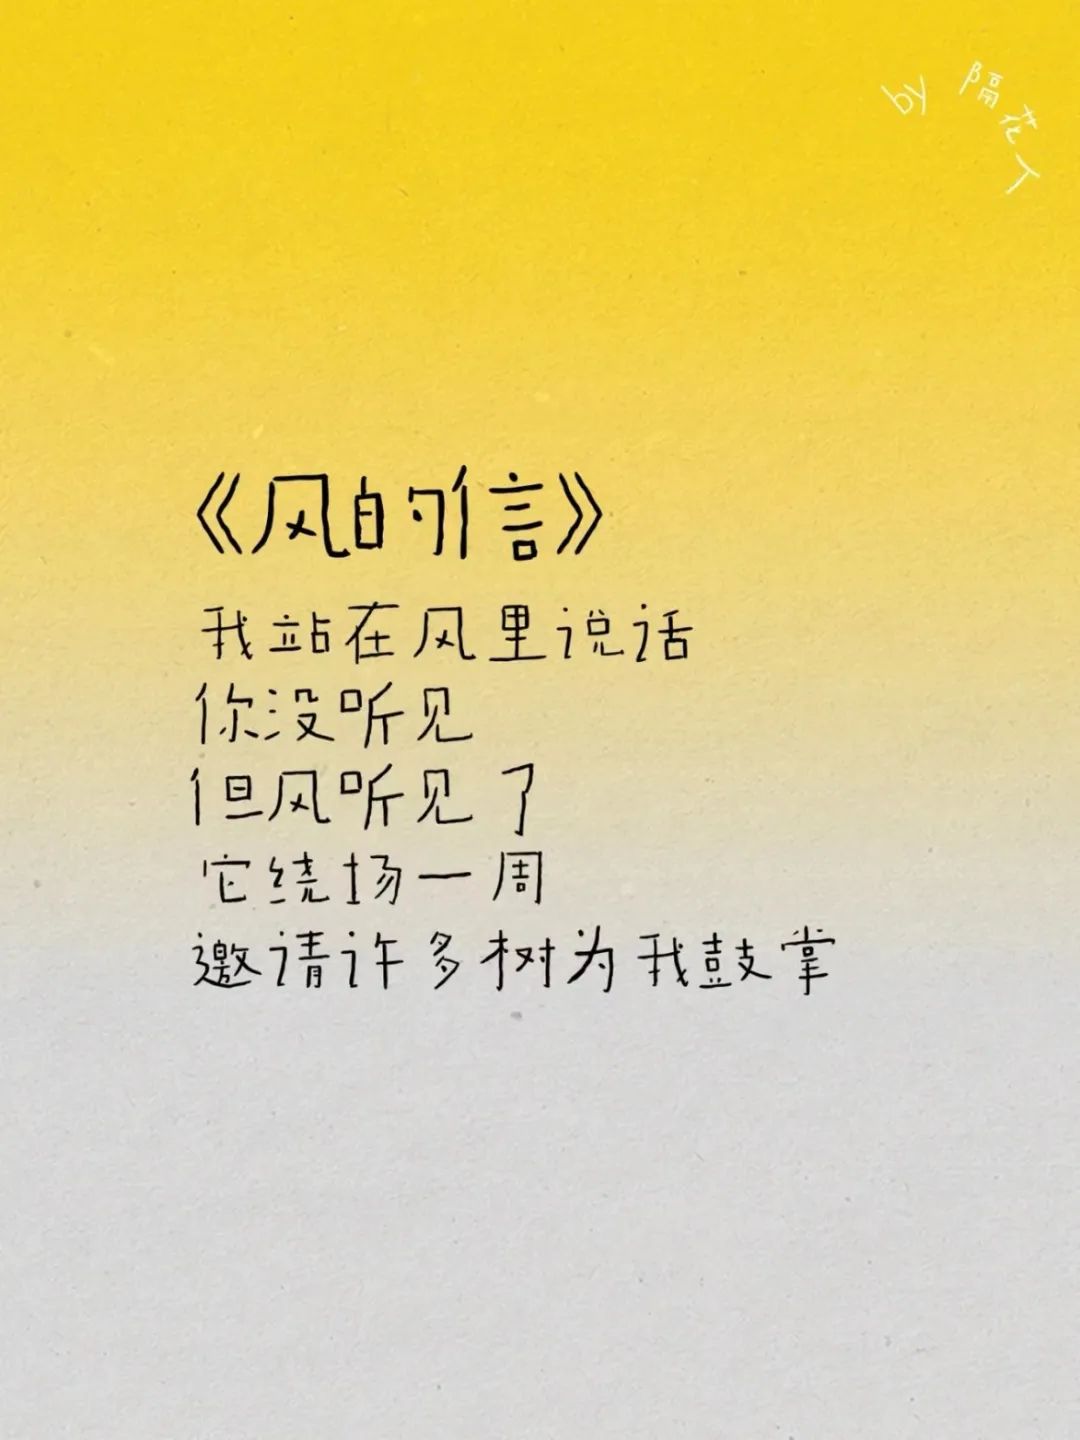 by 隔花人
《风的信》
我站在风里说话
你没听见
但风听见了
它绕场一周
邀请许多树为我鼓掌